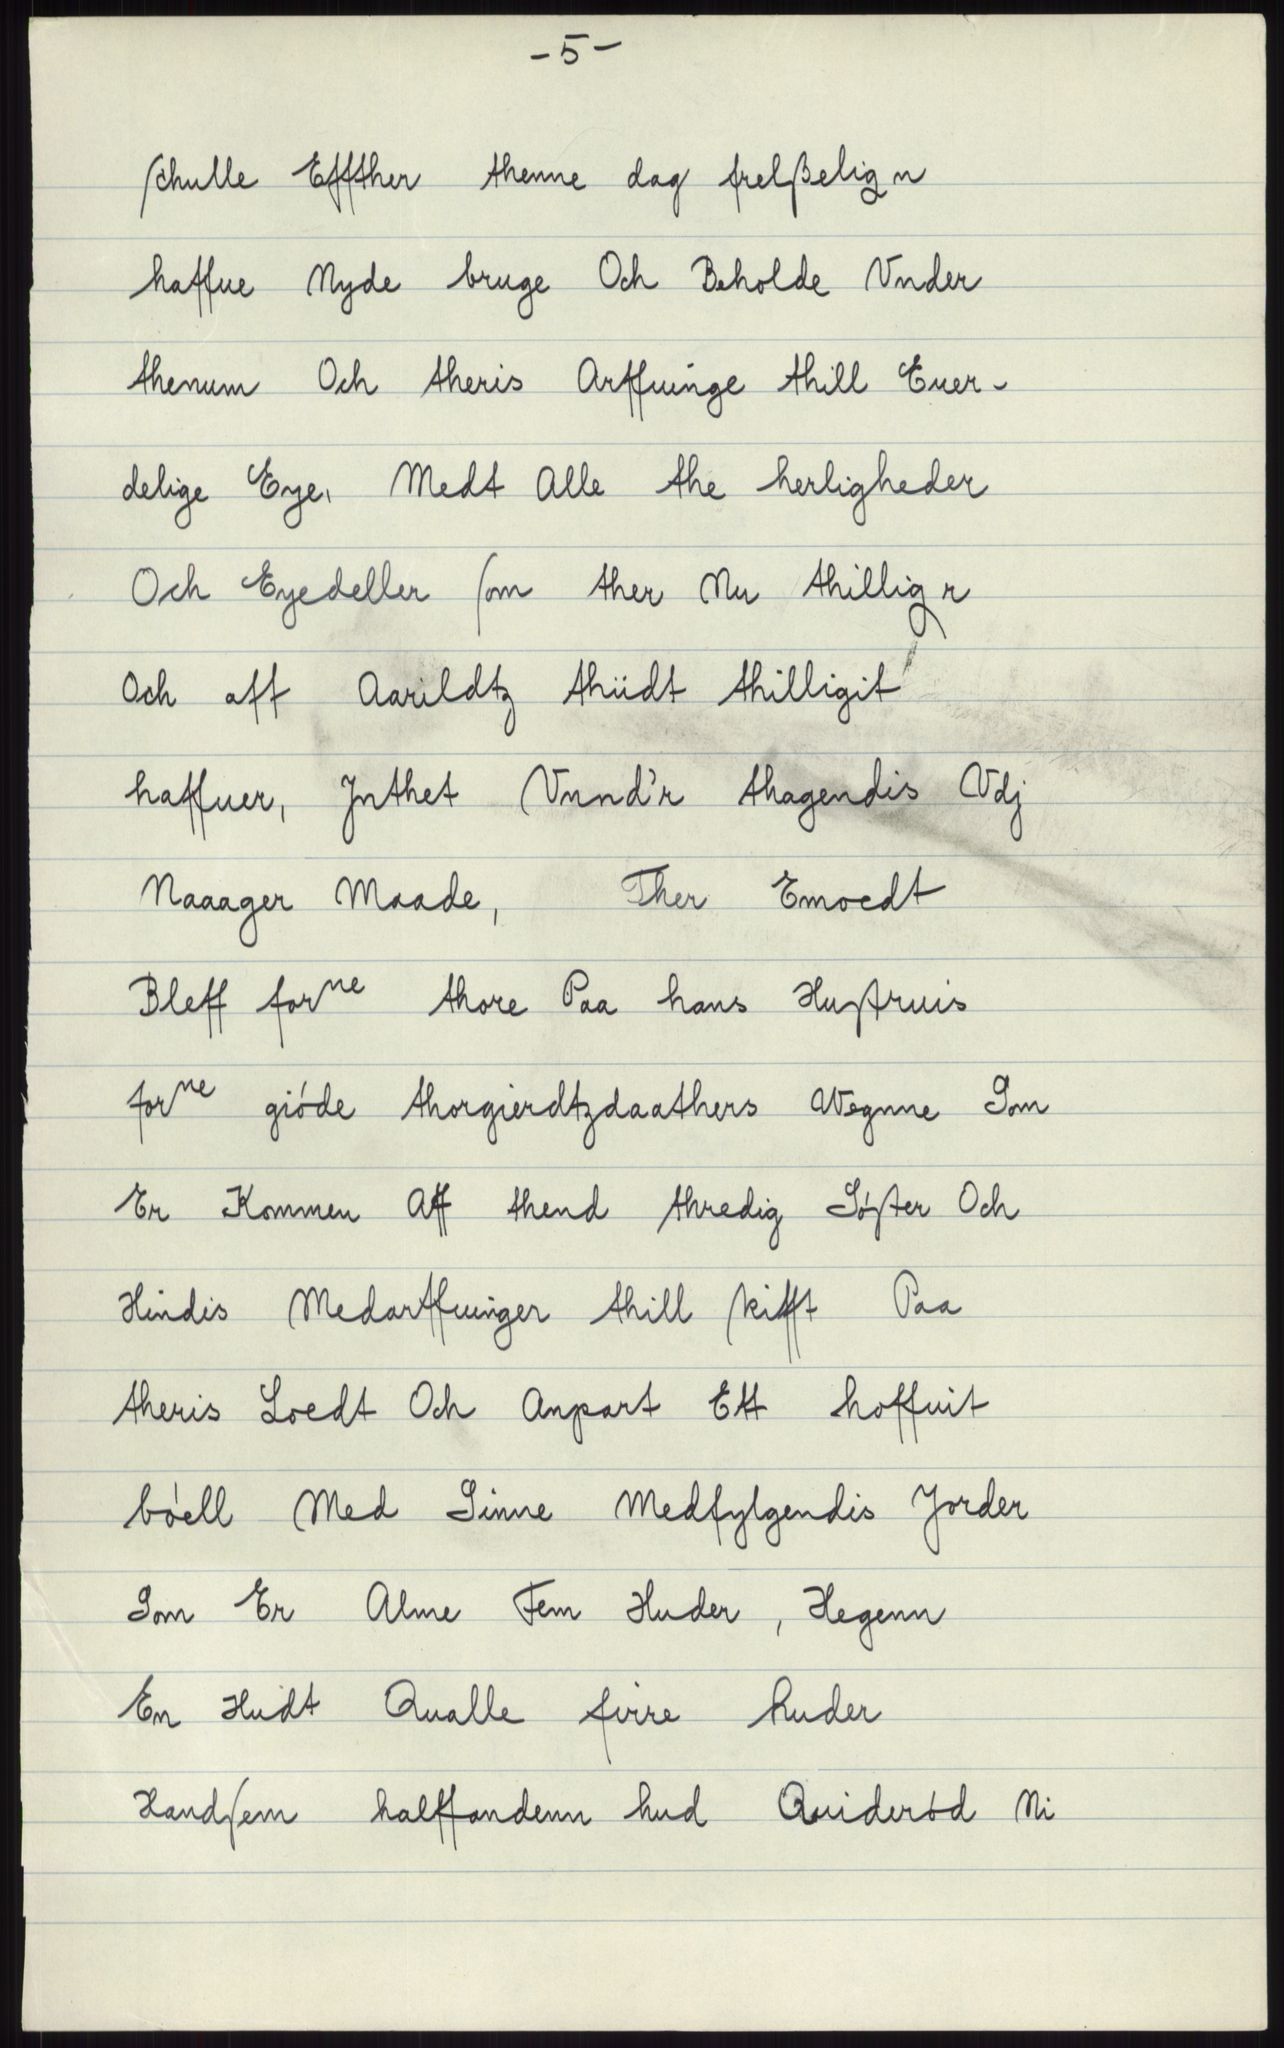 -5-
schulle Effther thenne dag frelßelign
haffue Nyde bruge Och Beholde Vnder
thenum Och theris Arffuinge thill Euer-
delige Eye, Medt Alle the herligheder
Och Eyedeller som ther Nu thilligr
Och aff Aarildtz thiidt thilligit
haffuer, Jnthet Vnnd'r thagendis Vdj
Naaager Maade, Ther Emoedt
Bleff forne thore Paa hans Hustruis
forne gióde thorgierdtzdaathers Wegnne Som
Er Kommen Aff thend thredig Sóster Och
Hindis Medarffuinger thill skifft Paa
theris Loedt Och Anpart Ett hoffuit
bóell Med Sinne Medfylgendis Jorder
Som Er Alme Fem Huder, Hegenn
En Hudt Qualle fiire huder
Handsem halffandenn hud Quideród Ni